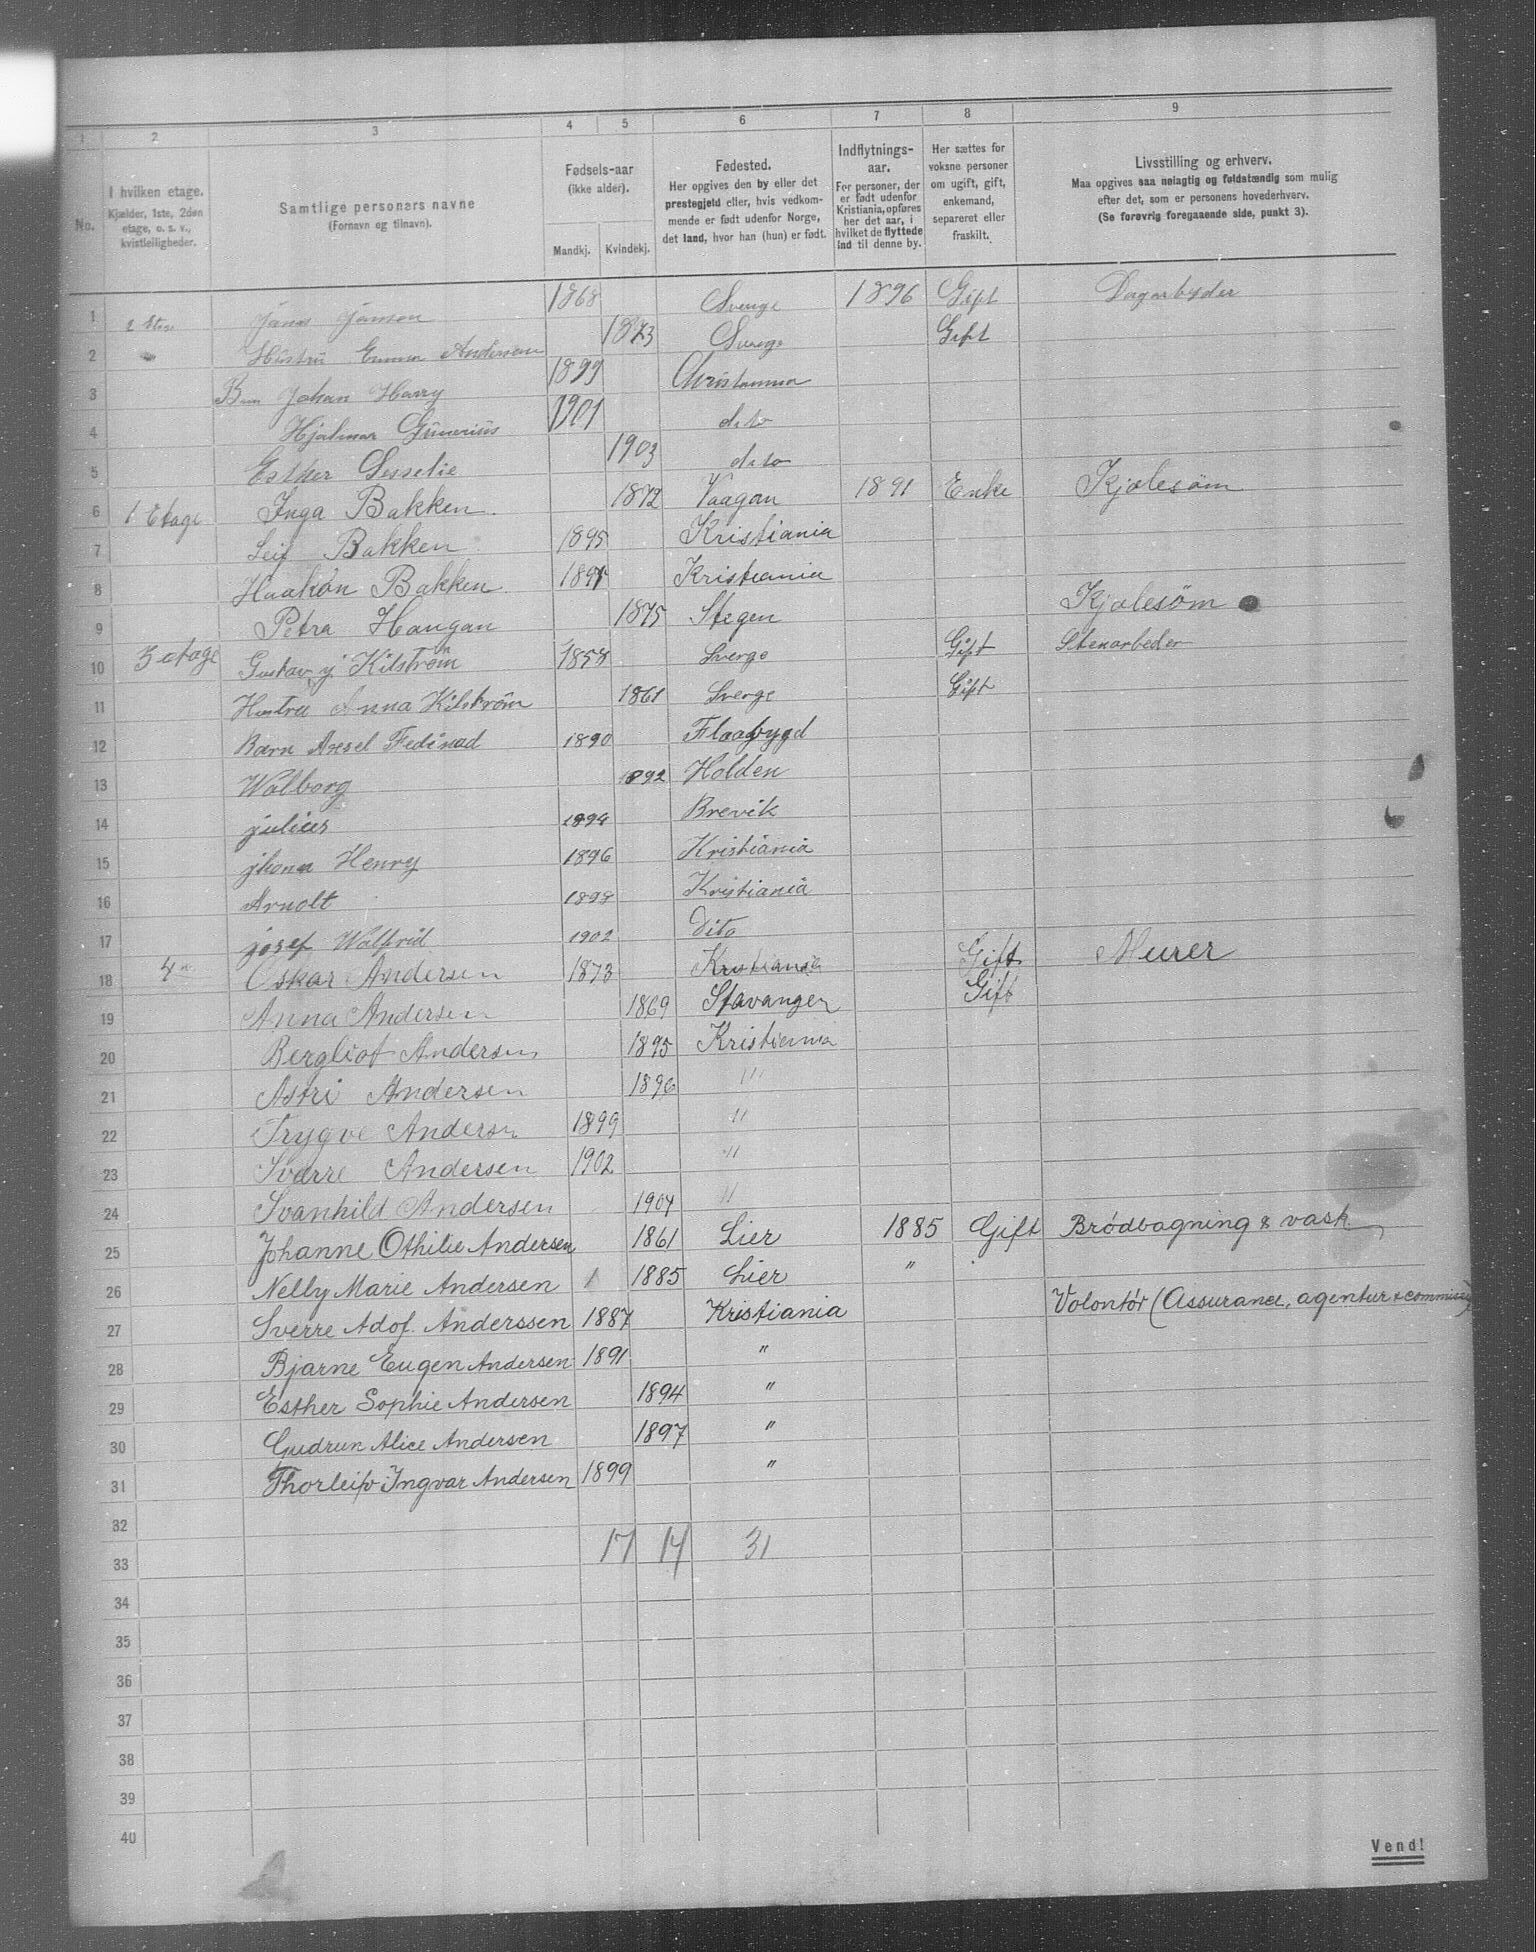 1 2 3 4 5 6 7 8 9
No.
I hvilken etage.
Kjælder, 1ste, 2den
etage, o. s. v.,
kvistleiligheder.
Samtlige personers navne
(Fornavn og tilnavn).
Fødsels-aar
(ikke alder).
Mandkj. Kvindekj.
Fødested.
Her opgives den by eller det
prestegjeld eller, hvis vedkom-
mende er født udenfor Norge,
det land, hvor han (hun) er født.
Indflytnings-
aar.
For personer, der
er født udenfor
Kristiania, opføres
her det aar, i
hvilket de flyttede
ind til denne by.
Her sættes for
voksne personer
om ugift, gift,
enkemand,
separeret eller
fraskilt.
Livsstilling og erhverv.
Maa opgives saa nøiagtig og fuldstændig som mulig
efter det, som er personens hovederhverv.
(Se forøvrig foregaaende side, punkt 3).
1 2 Etage Janson 1868 Sverge 1896 Gift
2 Hustru Emma Anderson 1873 Sverge Gift
3 Barn Johan Harry 1899 Christiania
4 Hjalmar 1901 dito
5 Esther 1903 dito
6 1 Etage Inga Bakken 1872 Vaagan 1891 Enke Kjolesøm
7 Leif Bakken 1895 Kristiania
8 Haakon Bakken Kristiania
9 Petra Haugan 1875 Stegen Kjolesøm
10 3 etage Gustav j Kilström 1858 Sverge Gift Stenarbeder
11 Hustru Anna Kilström 1861 Sverge Gift
12 Barn Axsel Fedinad 1890 Flaabygd
13 Walborg 1892 Holden
14 julius 1894 Brevik
15 Henry 1896 Kristiania
16 Arnolt 1898 Kristiania
17 josef Walfrid 1902 Dito
18 4 " Oskar Andersen 1873 Kristiania Gift Murer
19 Anna Andersen 1869 Stavanger Gift
20 Bergliot Andersen 1895 Kristiania
21 Astri Andersen 1896 "
22 Trygve Andersn 1899 "
23 Sverre Andersen 1902 "
24 Svanhild Andersen 1904 "
25 Johanne Othilie Andersen 1861 Lier 1885 Gift Brödbagning & vask
26 Nelly Marie Andersen 1885 Lier "
27 Sverre Adof. Anderssen 1887 Kristiania Volontör (Assurance, agentur & commision)
28 Bjarne Eugen Andersen 1891 "
29 Esther Sophie Andersen 1894 "
30 Gudrun Alice Andersen 1897 "
31 Thorleif Ingvar Andersen 1899 "
32
33 17 14 31
34
35
36
37
38
39
40
Vend!